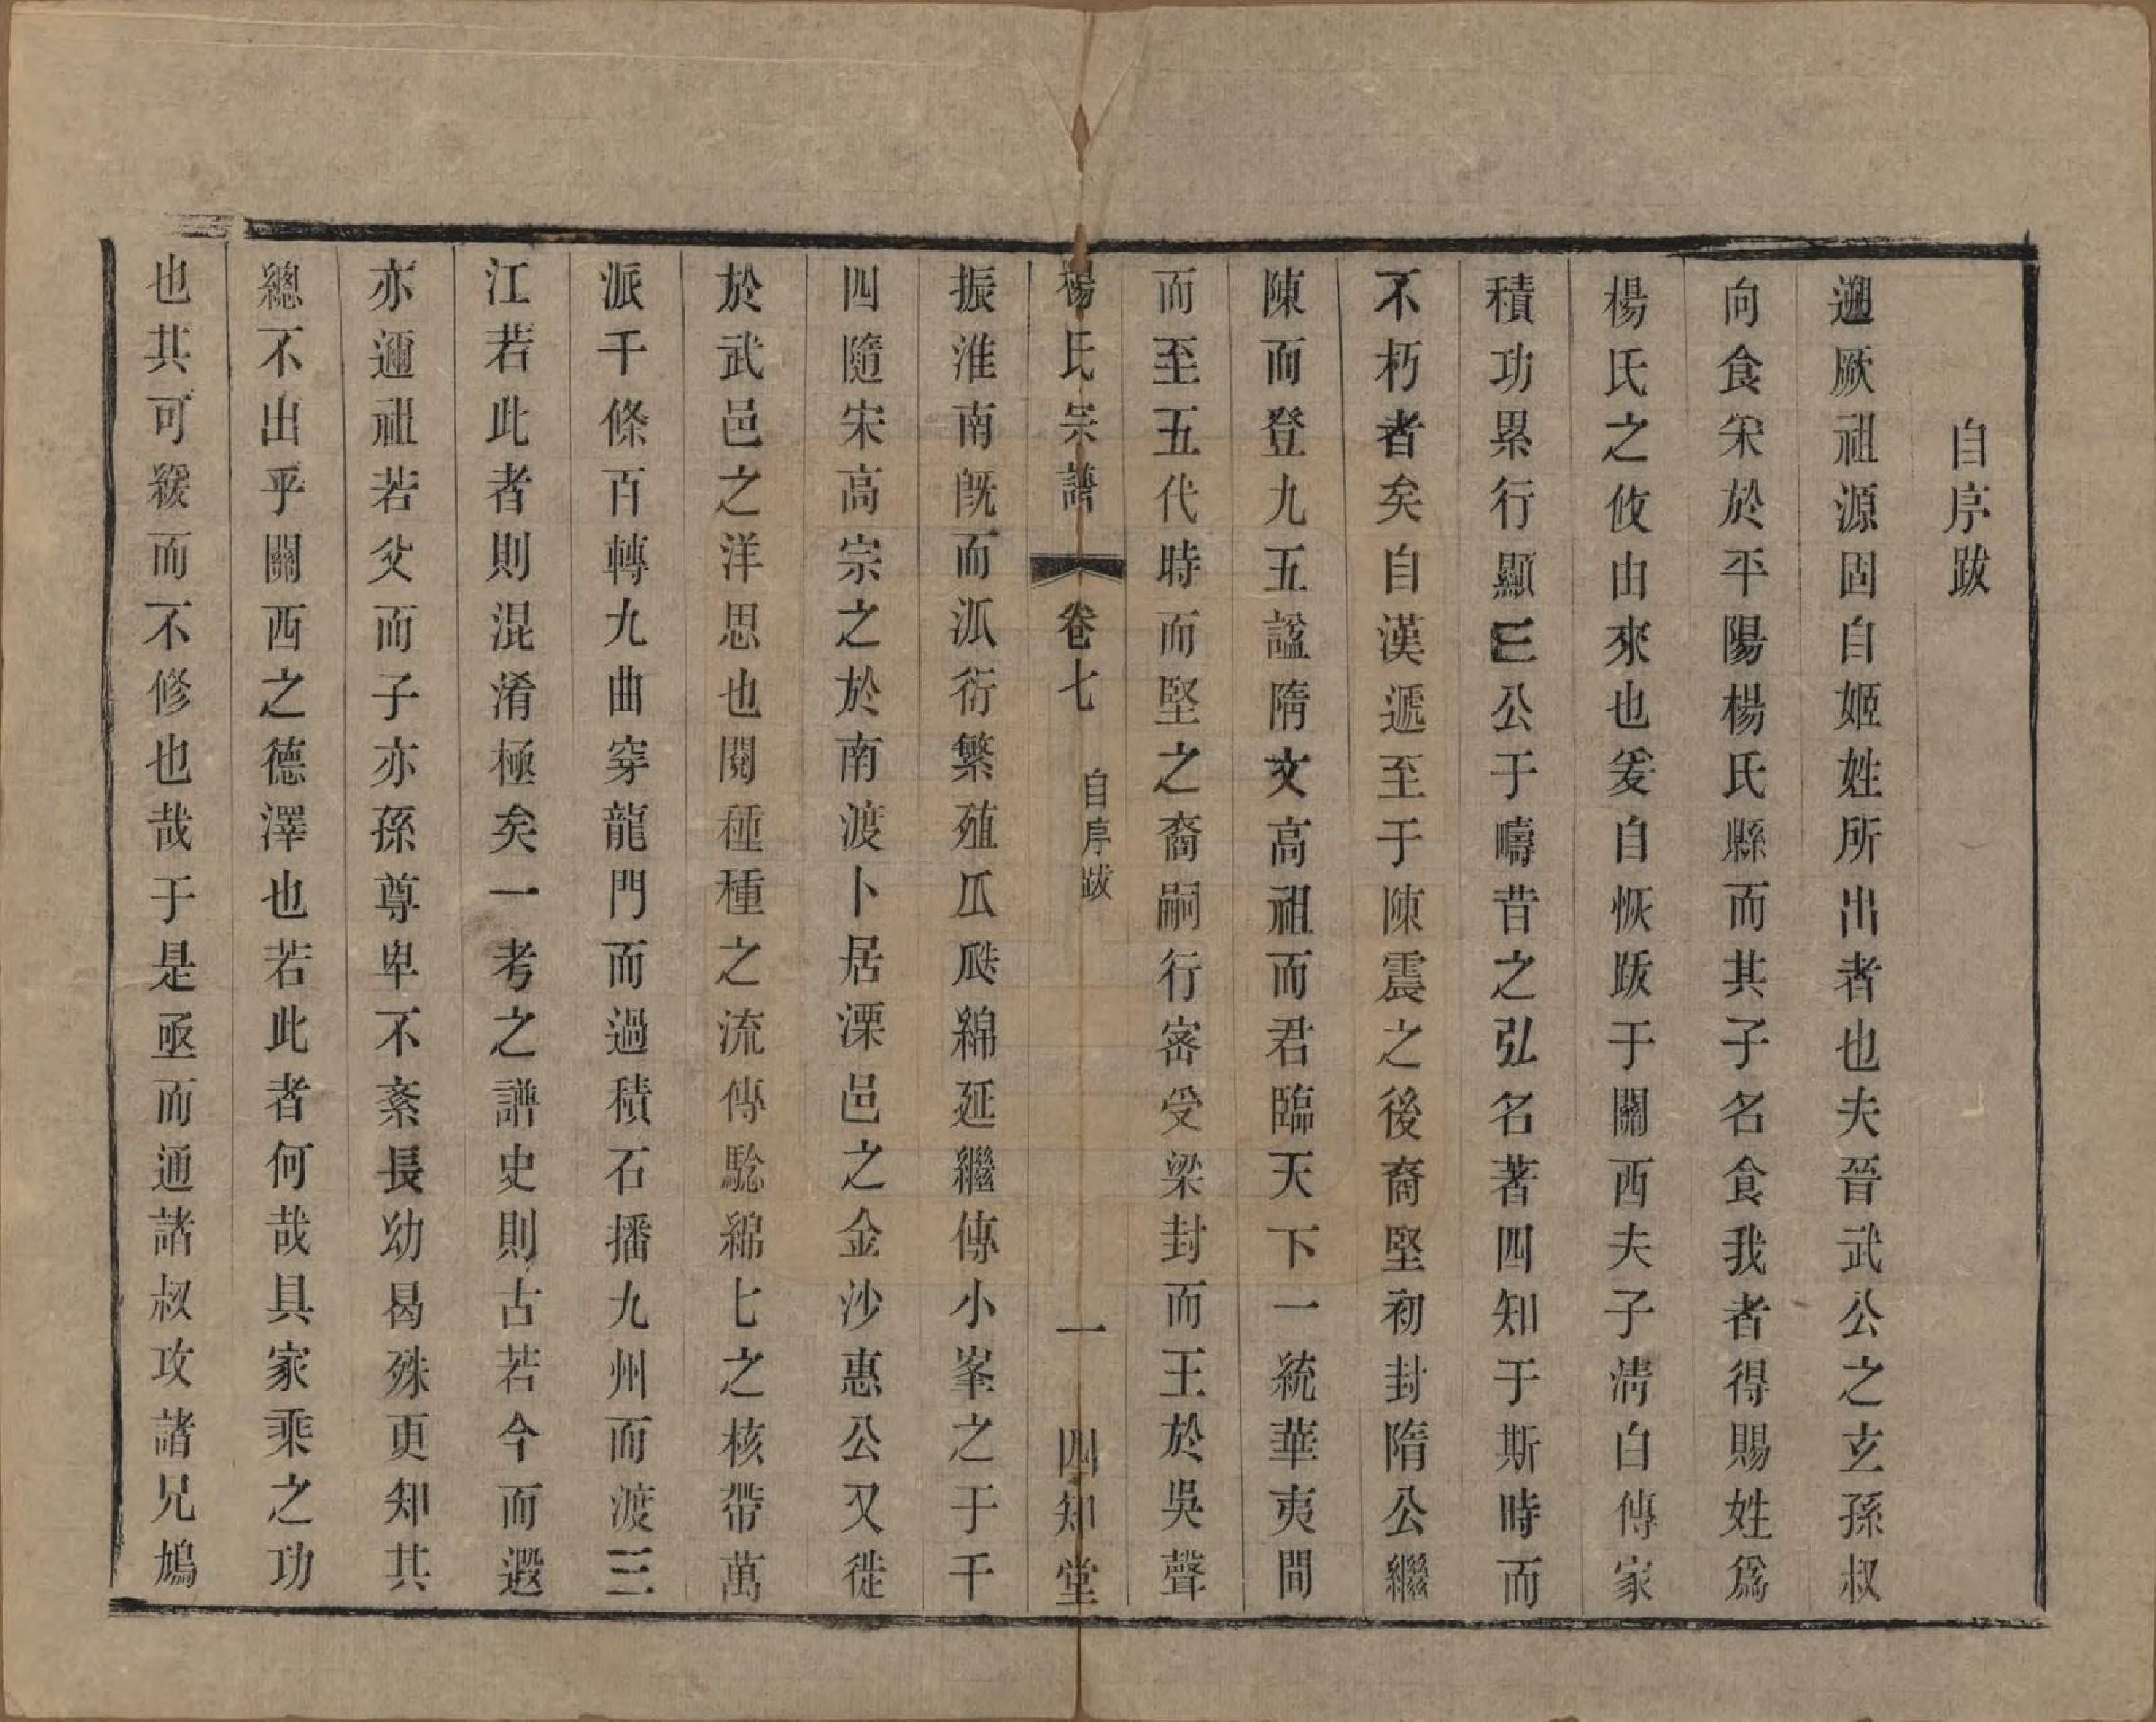 自序跋
遡厥祖源固自姬姓所出者也夫晉武公之玄孫叔
向食采於平陽楊氏縣而其子名食我者得賜姓爲
楊氏之攸由來也爰自恢跋于關西夫子淸白傳家
積功累行顯三公于疇昔之弘名著四知于斯時而
不朽者矣自漢遞至于陳震之後裔堅初封隋公繼
陳而登九五諡隋文高祖而君臨天下一統華夷間
而至五代時而堅之裔嗣行密受梁封而王於吳聲
楊氏宗譜 卷七 自序跋 一 四知堂
振淮南旣而派衍繁殖瓜瓞綿延繼傳小峯之于干
四隨宋高宗之於南渡卜居溧邑之金沙惠公又徙
於武邑之洋思也閱種種之流傳騐綿七之核帶萬
派千條百轉九曲穿龍門而過積石播九州而渡三
江若此者則混淆極矣一考之譜史則古若今而遐
亦邇祖若父而子亦孫尊卑不紊長幼曷殊更知其
總不出乎關西之德澤也若此者何哉具家乘之功
也其可緩而不修也哉于是亟而通諸叔攻諸兄鳩